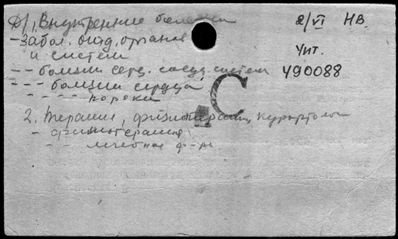 1, Внутренние болезни
2/VI НВ.
- Забол. отд. органов
и систем
Чит.
- - болезни серд. сосуд. систем
490088
- - - болезни сердца
- - - - пороки
С
2. Терапия, физиотерапия, курортол
- физиотерапия
- - лечебная ф-ра